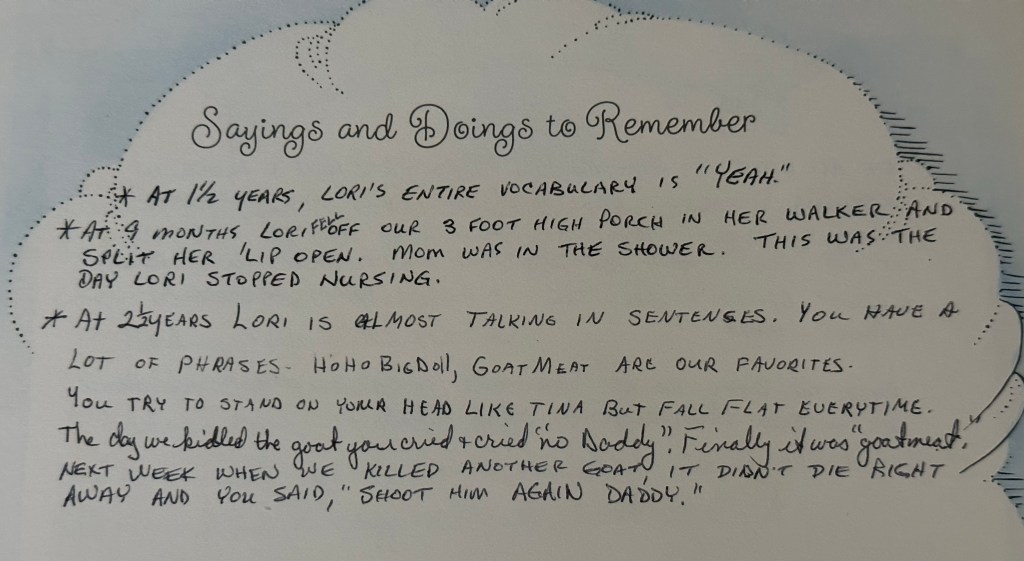 Sayings and Doings to Remember
* AT 1½ YEARS, LORI'S ENTIRE VOCABULARY IS "YEAH."
* At 9 MONTHS LORI FELL OFF OUR 3 FOOT HIGH PORCH IN HER WALKER AND
SPLIT HER LIP OPEN. MOM WAS IN THE SHOWER. THIS WAS THE
DAY LORI STOPPED NURSING.
* At 2½ YEARS LORI IS ALMOST TALKING IN SENTENSES. YOU HAVE A
LOT OF PHRASES - HOHO BIG Doll, GOAT MEAT ARE OUR FAVORITES.
YOU TRY TO STAND ON YOUR HEAD LIKE TINA BUT FALL FLAT EVERYTIME.
The day we killed the goat you cried & cried "no Daddy". Finally it was "goatmeat."
NEXT WEEK WHEN WE KILLED ANOTHER GOAT, IT DIDN'T DIE RIGHT
AWAY AND YOU SAID, "SHOOT HIM AGAIN DADDY."